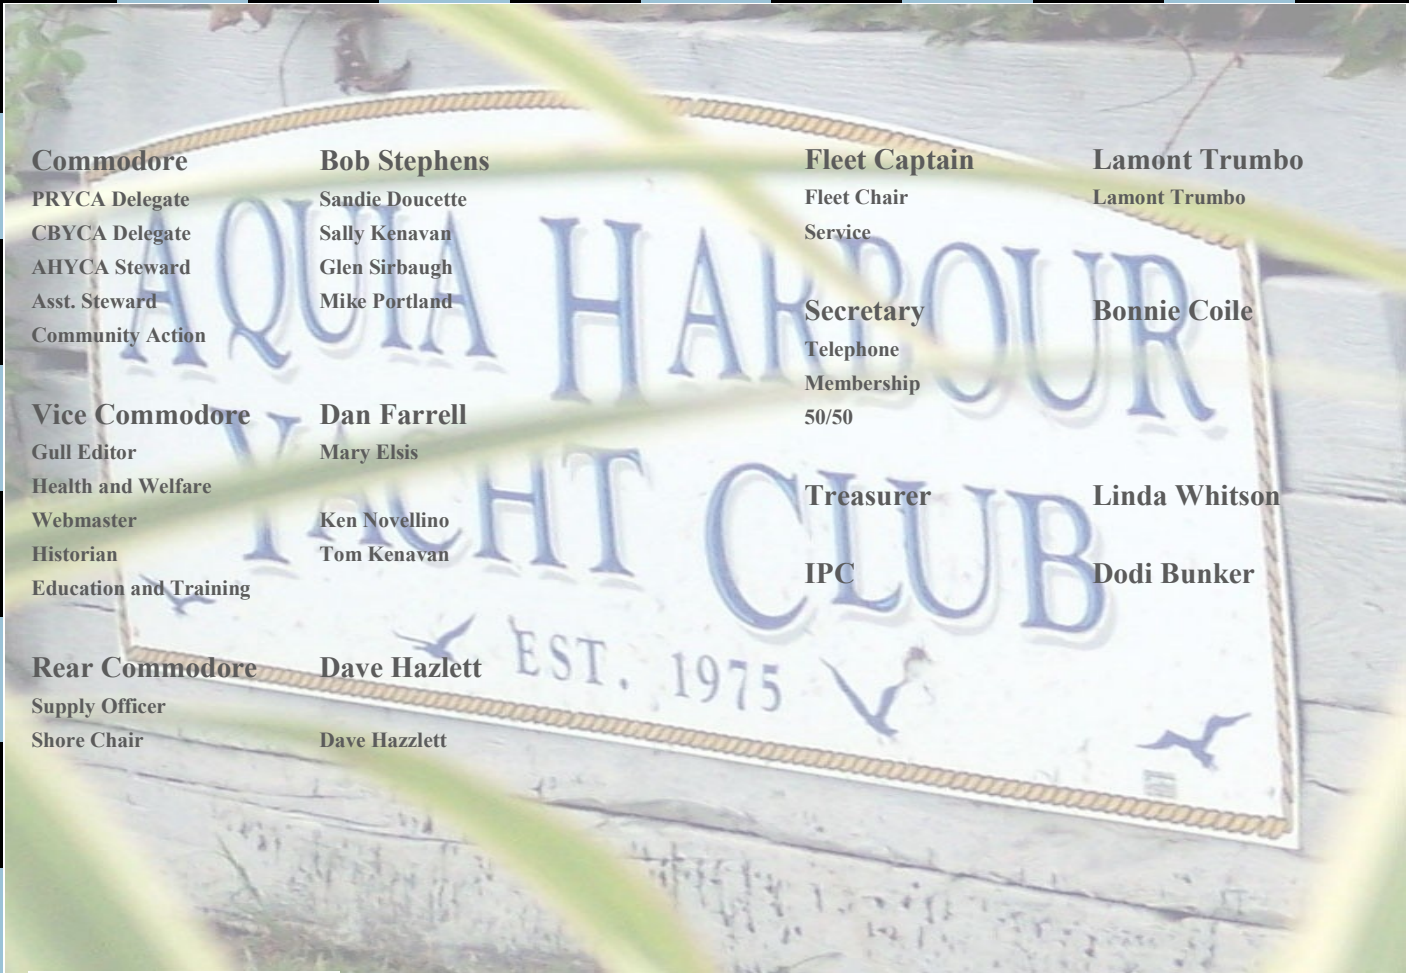 Commodore Bob Stephens
PRYCA Delegate Sandie Doucette
CBYCA Delegate Sally Kenavan
AHYCA Steward Glen Sirbaugh
Asst. Steward Mike Portland
Community Action
Vice Commodore Dan Farrell
Gull Editor Mary Elsis
Health and Welfare
Webmaster Ken Novellino
Historian Tom Kenavan
Education and Training
Rear Commodore Dave Hazlett
Supply Officer
Shore Chair Dave Hazzlett
Fleet Captain Lamont Trumbo
Fleet Chair Lamont Trumbo
Service
Secretary Bonnie Coile
Telephone
Membership
50/50
Treasurer Linda Whitson
IPC Dodi Bunker
AQUIA HARBOUR
YACHT CLUB
EST. 1975